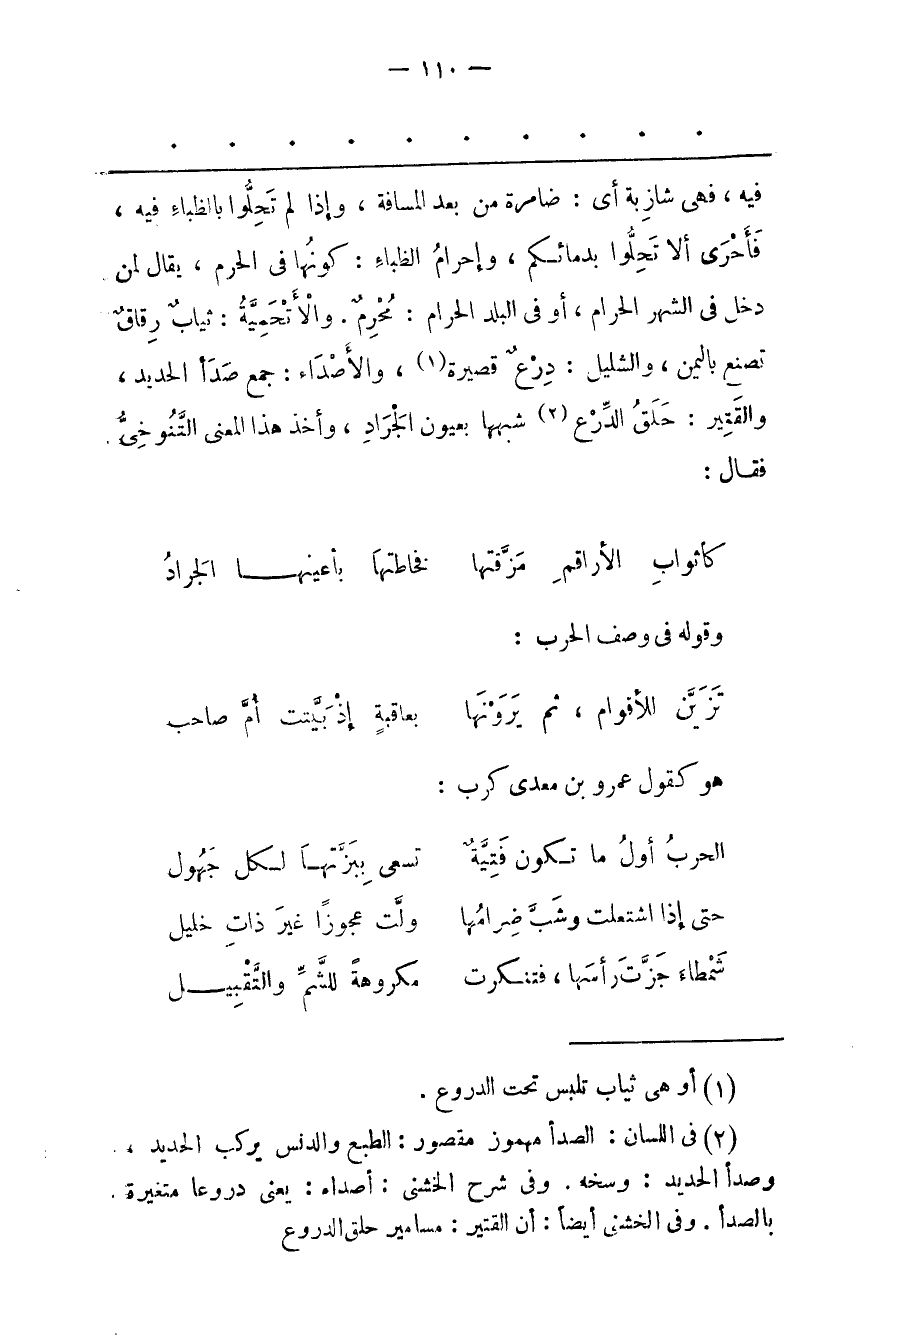 — ١١٠ —
. . . . . . . . . .
فيه ، فهى شازِبة أى : ضامرة من بعد المسافة ، وإذا لم تَحِلُّوا بالظباءِ فيه ،
فَأَحْرَى ألا تَحِلُّوا بدمائـكم ، وإحرامُ الظباءِ : كونُها فى الحرم ، يقال لمن
دخل فى الشهر الحرام ، أو فى البلد الحرام : مُحْرِمٌ . والْأَتْحَمِيَّةُ : ثيابٌ رِقاقٌ
تصنع باليمن ، والشليل : دِرْعٌ قصيرة (١) ، والأَصْدَاء : جمع صَدَأ الحديد ،
والقَتِير : حَلَقُ الدِّرْع (٢) شبهها بعيون الجْرَادِ ، وأخذ هذا المعنى التَّنُوخِىُّ .
فقـال :
كأثوابِ الأراقمِ مَزَّقتها فخاطتهَا بأعينهـــا الجرادُ
وقوله فى وصف الحرب :
تَزَيَّن للأقوام ، ثم يَرَوْنَهَا بعاقبةٍ إِذْ بَيَّنت أُمَّ صاحب
هو كـقول عمرو بن معدى كرب :
الحربُ أولُ ما تـكون فَتِيَّةٌ تسعى بِبَزَّتهـَا لـكل جَهُول
حتى إذا اشتعلت وشَبَّ ضِرامُها ولَّت عجوزًا غيرَ ذاتِ خليل
شَمْطاء جَزَّتَ رأسَها ، فتنـكرت مكروهةً للشَّمِّ والتَّقْبِيــل
(١) أو هى ثياب تلبس تحت الدروع .
(٢) فى اللسان : الصدأ مهموز مقصور : الطبع والدنس يركب الحديد ،
وصدأ الحديد : وسخه . وفى شرح الخشنى : أصداء : يعنى دروعا متغيرة
بالصدأ . وفى الخشنى أيضاً : أن القتير : مسامير حلق الدروع